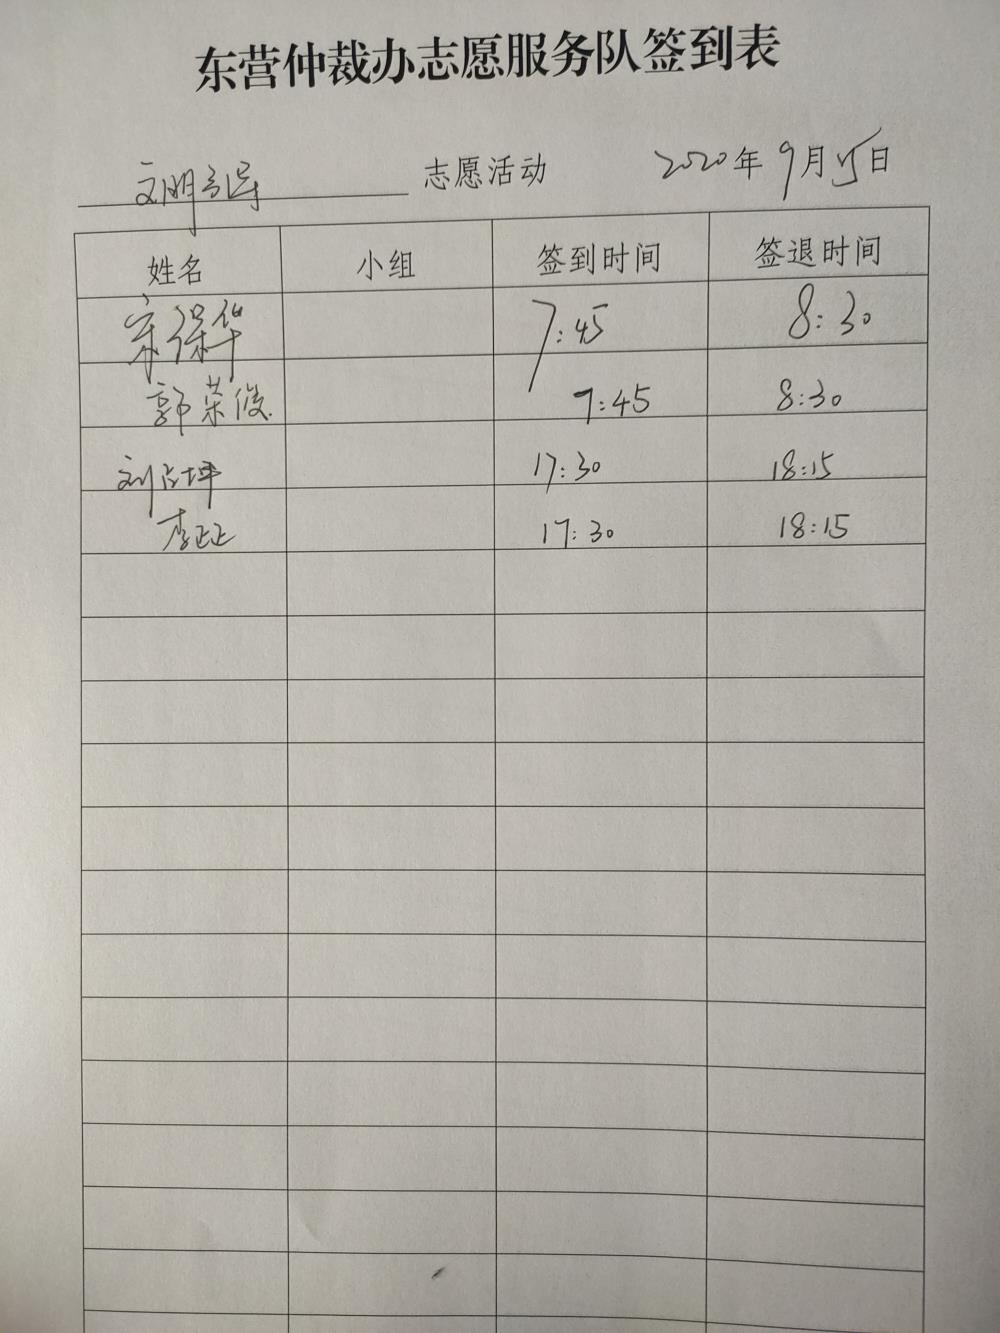 东营仲裁办志愿服务队签到表
文明引导 志愿活动 2020年9月15日
姓名 小组 签到时间 签退时间
宋保华 7:45 8:30
郭荣俊 7:45 8:30
刘 坪 17:30 18:15
李正正 17:30 18:15